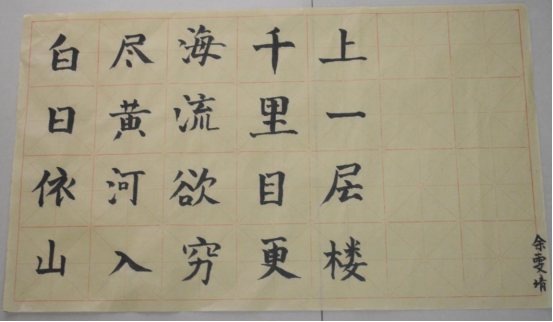 白日依山
尽黄河入
海流欲穷
千里目更
上一层楼
余雯